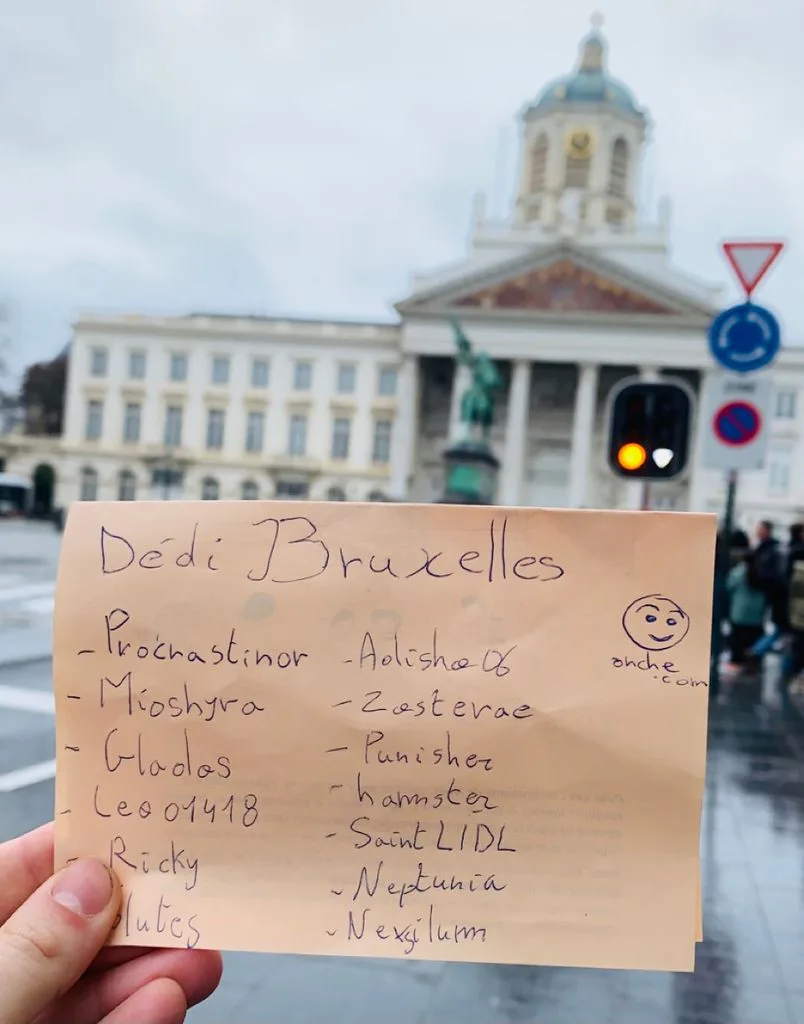 Dédi Bruxelles
- Procrastinor
- Mioshyra
- Glados
- Leo01418
- Ricky
- Adisha06
- Zosterae
- Punisher
- hamster
- Saint LIDL
- Neptunia
- Nexilum
anche
.com